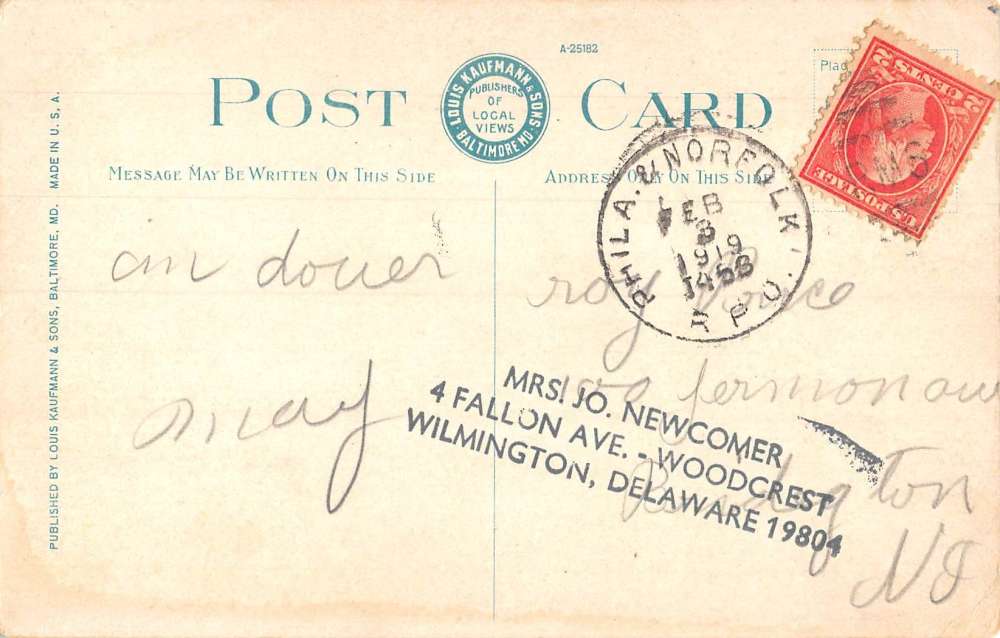 A-25182
POST CARD
LOUIS KAUFMANN & SONS
PUBLISHERS
OF
LOCAL
VIEWS
BALTIMORE MD.
Plac
2 CENTS 2
U.S. POSTAGE
MESSAGE MAY BE WRITTEN ON THIS SIDE
ADDRESS ONLY ON THIS SIDE
PHILA. & NORFOLK
FEB
3
1919
R.P.O.
in dover
may
roy
NJ
MRS. JO. NEWCOMER
4 FALLON AVE. - WOODCREST
WILMINGTON, DELAWARE 19804
PUBLISHED BY LOUIS KAUFMANN & SONS, BALTIMORE, MD. MADE IN U.S.A.